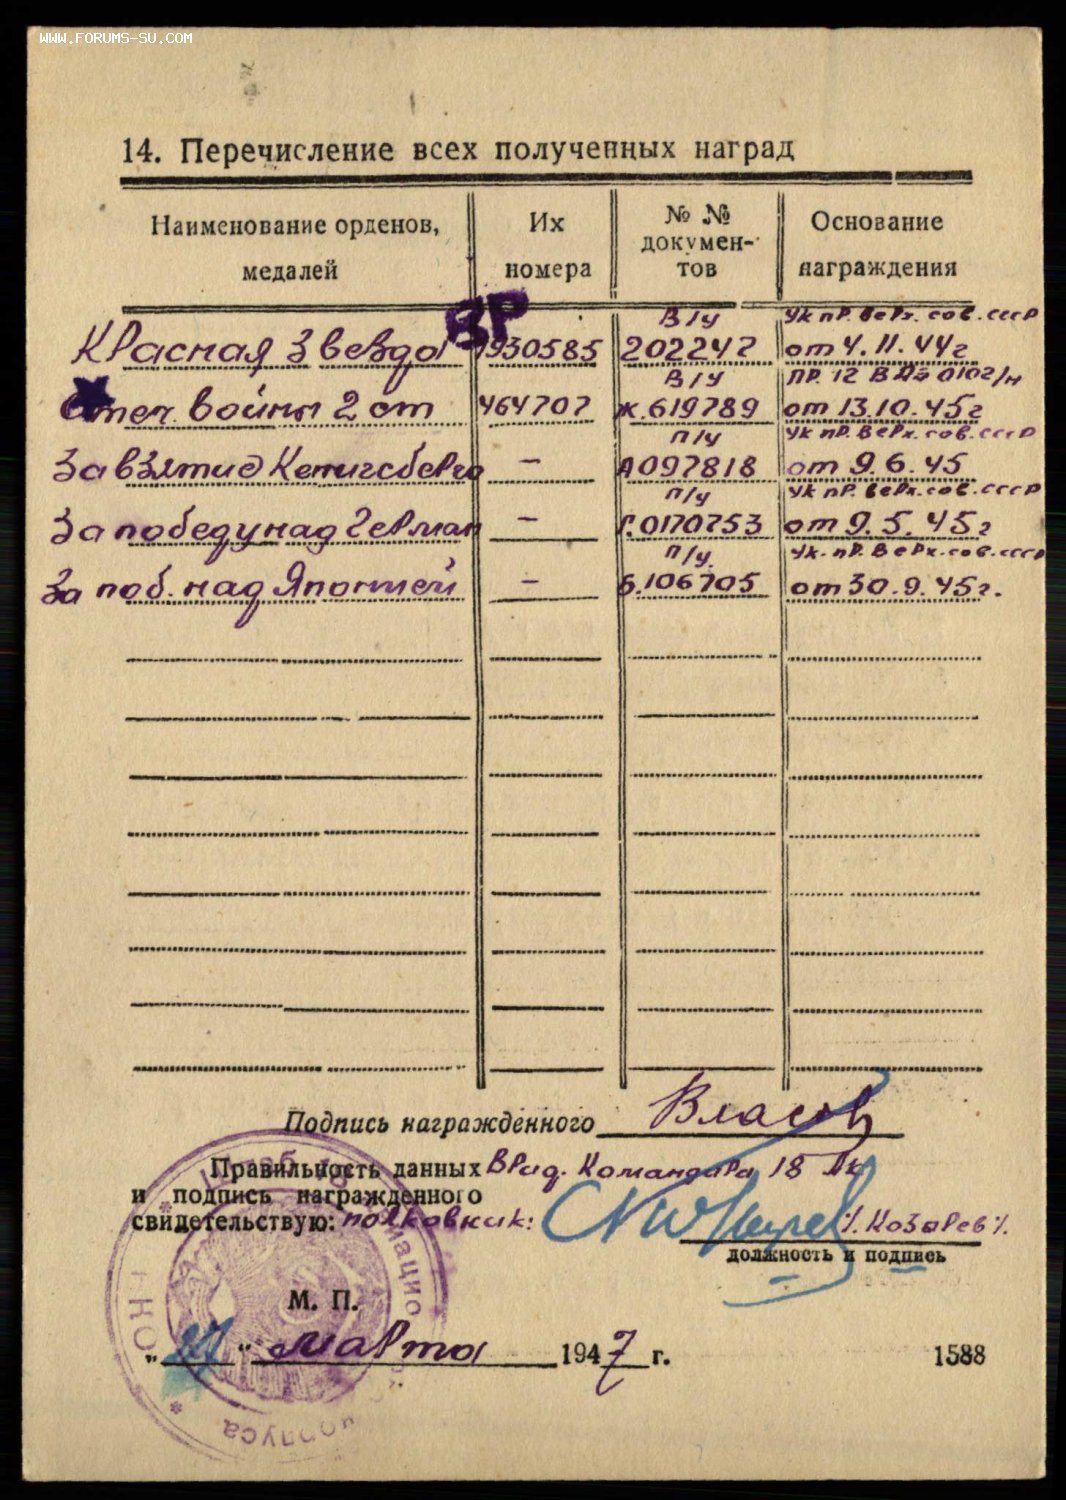 WWW.FORUMS-SU.COM
14. Перечисление всех полученных наград
Наименование орденов, медалей
Их номера
№ № докумен-тов
Основание награждения
ВР
В/у Ук пР. ВеРх. сов. СССР
КРасная Звезда 1930585 202242 от 4.11.44г
В/У ПР. 12 В 0102/н
Отеч. Войны 2 ст 464707 Ж.619789 от 13.10.45г
П/у Ук пР. ВеРх. сов. СССР
За взятие Кенигсберга — А097818 от 9.6.45
П/у Ук пР. ВеРх. сов. СССР
За победу над Герман — Г.0170753 от 9.5.45г
П/у. Ук. пР. ВеРх. сов. СССР
За поб. над Японией — Б.106705 от 30.9.45г.
Подпись награждённого Власов
Правильность данных Врид. Командира 18
и подпись награжденного
свидетельствую: полковник: /. Козырев /.
должность и подпись
Штаб
корпуса
НКО
М. П.
„ “ марта 1947 г.
1588